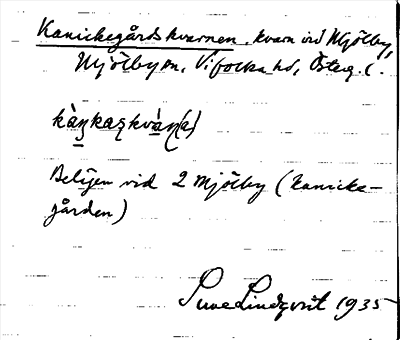 Kanickegårdskvarnen, kvarn vid Mjölby,
Mjölby sn, Vifolka hd, Österg. l.
kàŋkaʂkvàɳ(a)
Belägen vid 2 Mjölby (Kanicke-
gården)
Sune Lindqvist 1935